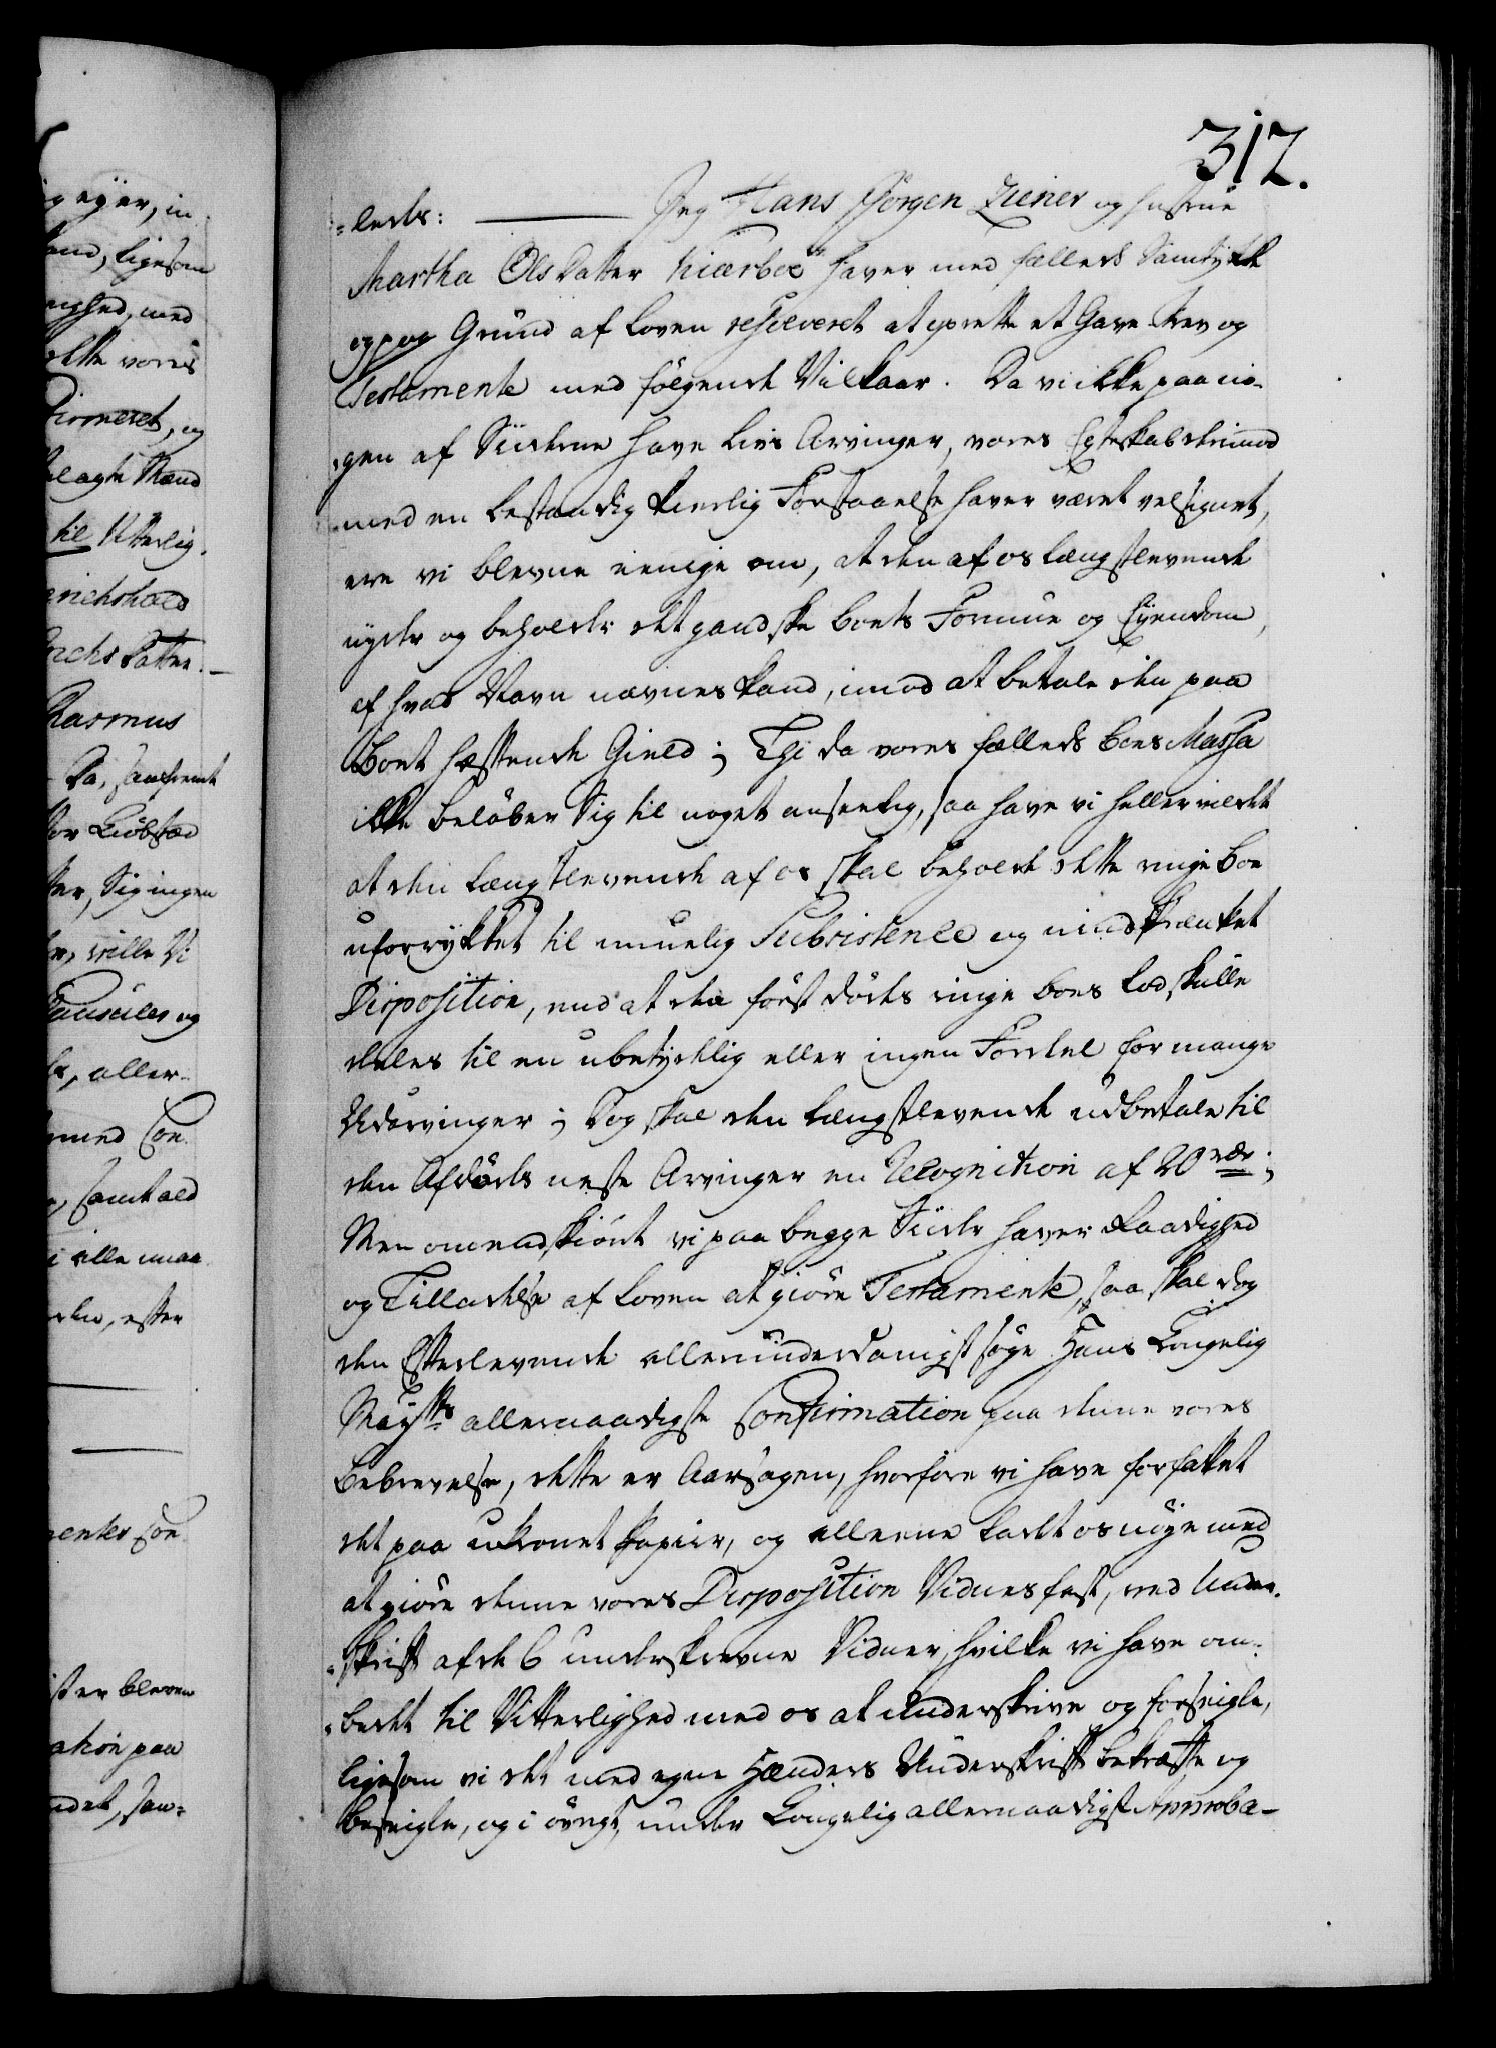 312.
"leds: ——— Jeg Hans Jørgen Ziener og Hustrue
Martha Ols Datter Kiærboe haver med fælleds Samtykke
og paa Grund af Loven resolveret at oprette et Gave Brev og
Testamente med følgende Vilkaar. Da vi ikke paa no-
"gen af Siiderne have Livs Arvinger, vores Egteskab derimod
med en bestandig kierlig Forstaaelse haver været velsignet,
ere vi blevne eenige om, at den af os længstlevende
nyder og beholder det gandske Boets Formue og Eyendom,
af hvad Navn nævnes kand, imod at betale den paa
Boet hæftende Gield; Thi da vores fælleds Boes Massa
ikke beløber Sig til noget anseelig, saa have vi heller villet
at den længstlevende af os skal beholde dette ringe Boe
uforrykket til muelig Subsistence og uindskrænket
Disposition, end at den først dødes ringe Boes Lod skulle
deles til en ubetydelig eller ingen Fordeel for mange
Udarvinger; Dog skal den længstlevende udbetale til
den Afdødes neste Arvinger en Recognition af 20 rdr;
Men omendskiønt vi paa begge Siider haver Raadighed
og Tilladelse af Loven at giøre Testamente, saa skal dog
den Efterlevende allerunderdanigst søge Hans Kongelig
Mayts allernaadigste Confirmation paa denne vores
Bebrevelse, dette er Aarsagen, hvorfore vi have forfattet
det paa ukronet Papiir, og alleene ladet os nøye med
at giøre denne vores Disposition Vidnesfast, ved Under-
"skrift af de 6 underskrevne Vidner, hvilke vi have om-
"bedet til Vitterlighed med os at underskrive og forseigle,
ligesom vi det med egne Hænders Underskrift bekræfte og
beseigle, og i øvrigt, under Kongelig allernaadigst Approba-